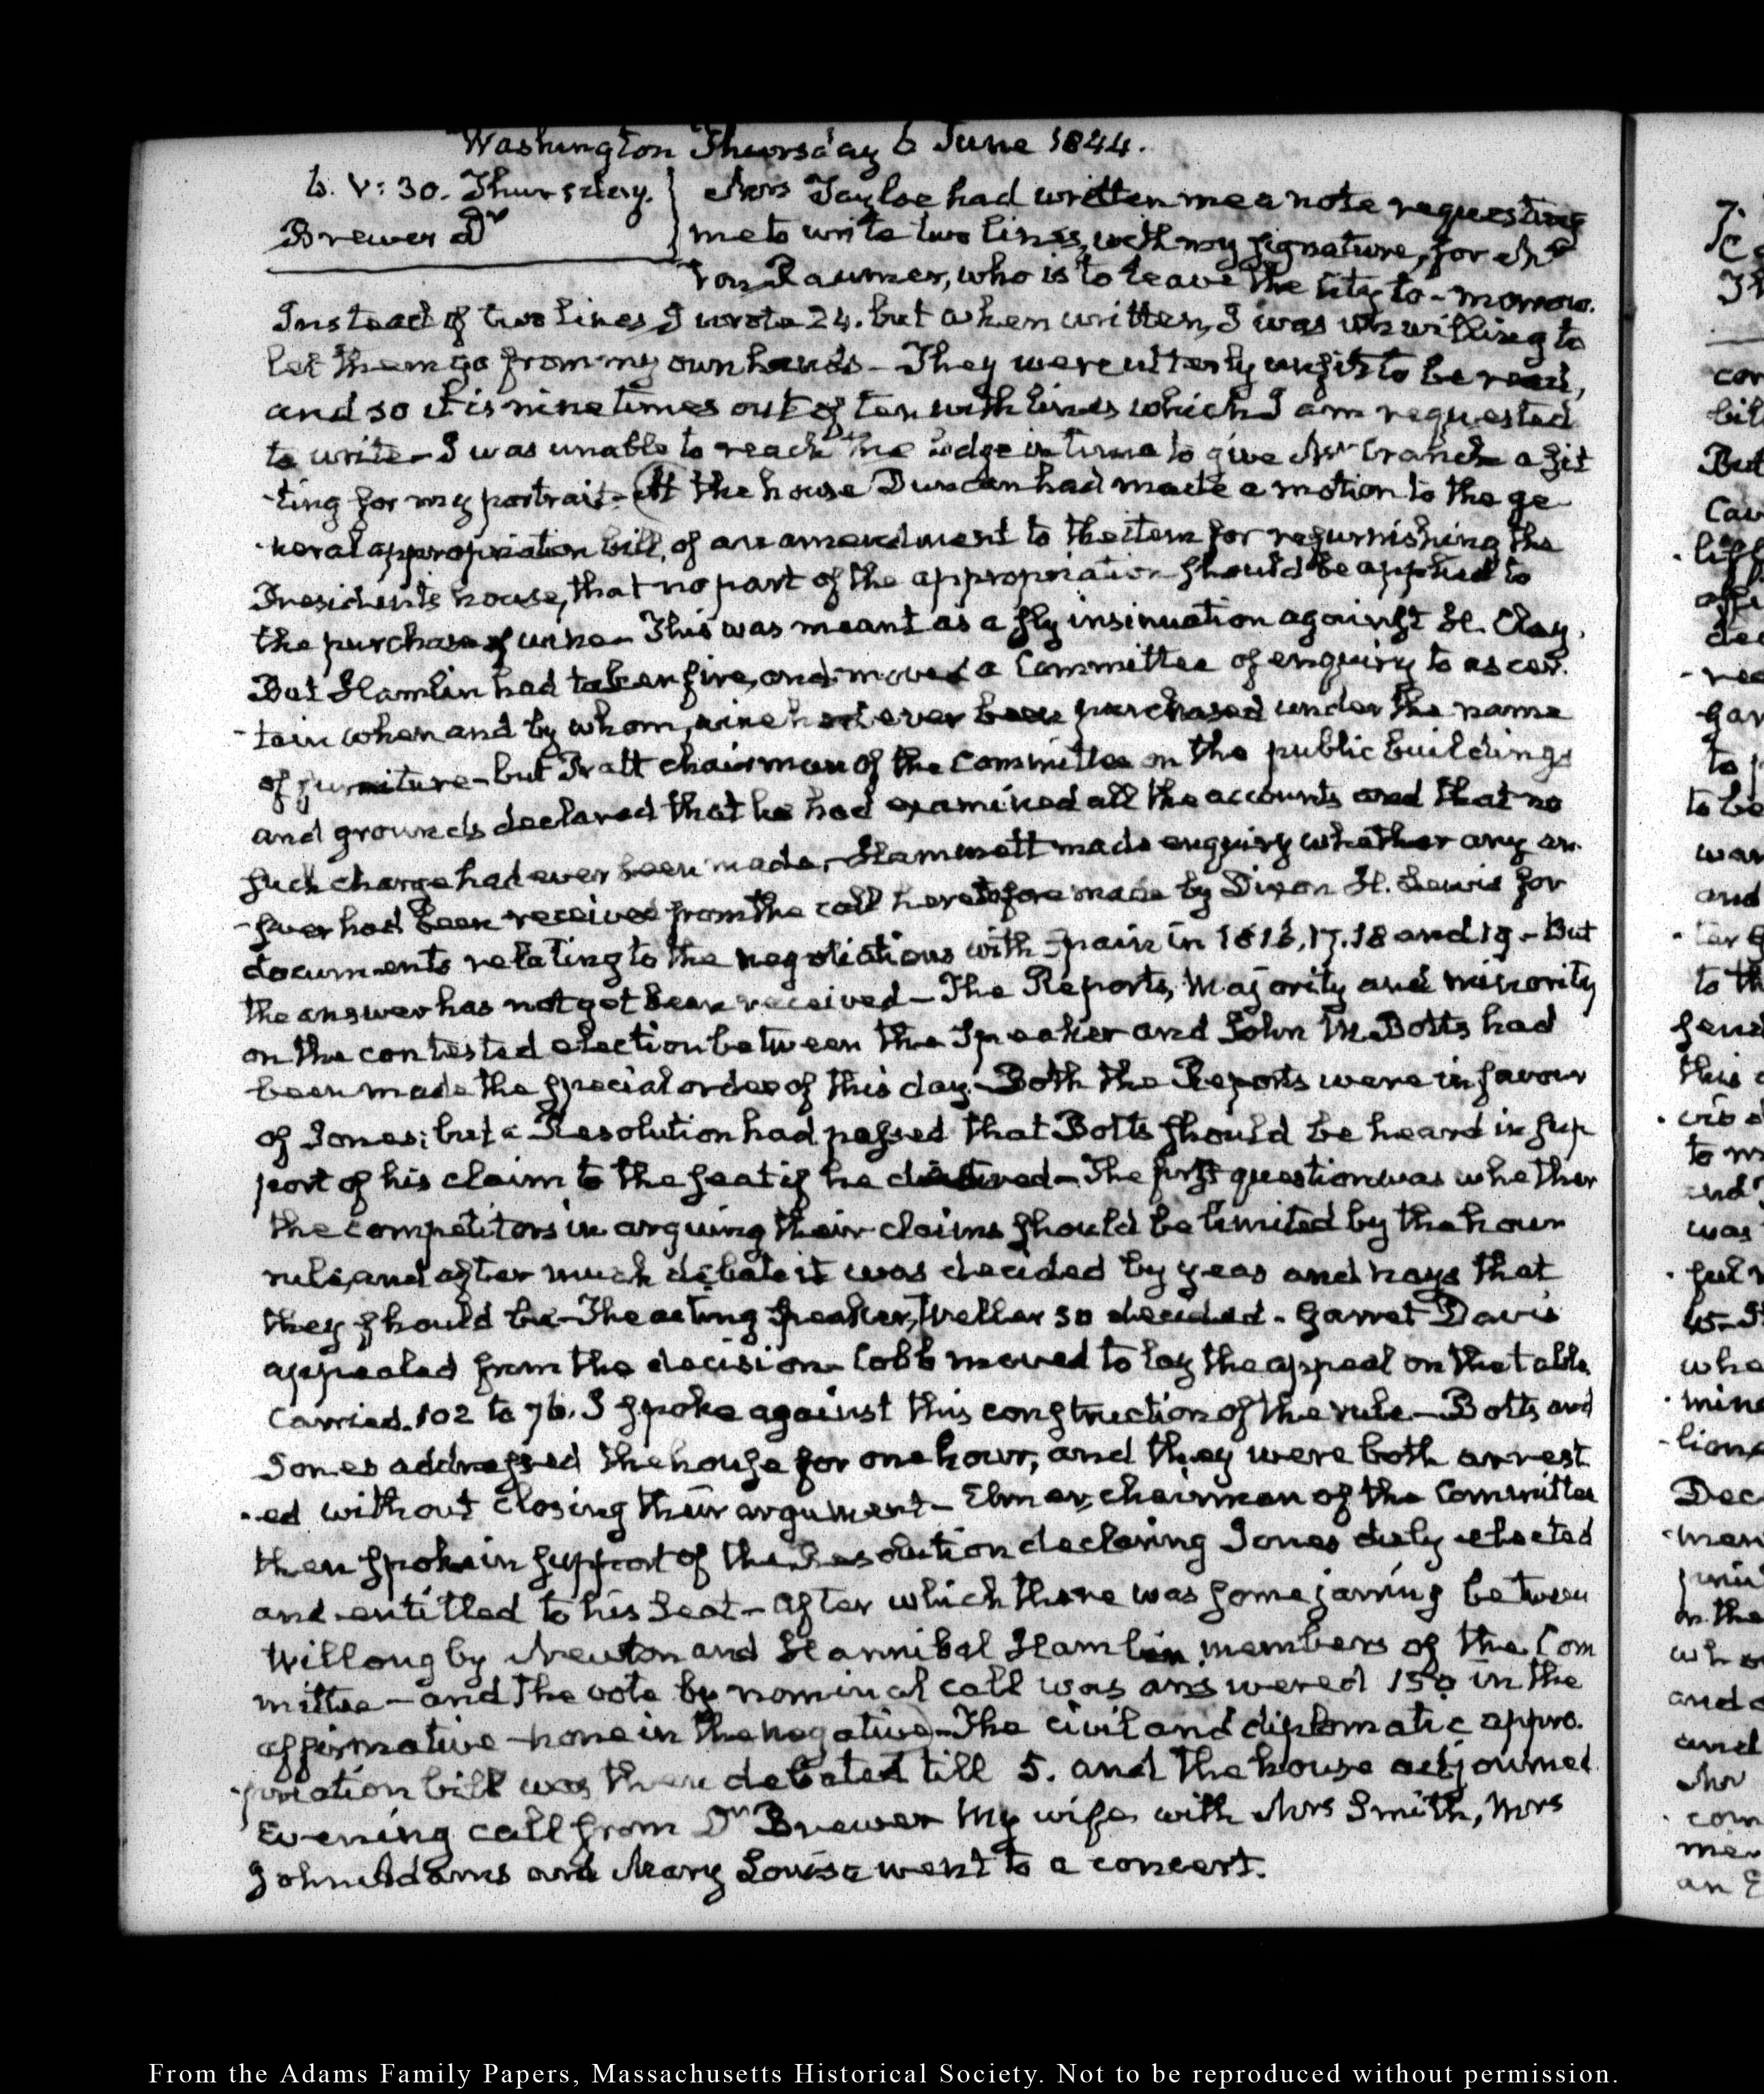 Washington Thursday 6 June 1844.
6. V: 30. Thursday.
Brewer Dr
Mrs Tayloe had written me a note requesting
me to write two lines, with my signature, for Mr
Von Raumer, who is to leave the City to-morrow.
Instead of two lines, I wrote 24. but when written, I was unwilling to
let them go from my own hands — They were utterly unfit to be read,
and so it is nine times out of ten with lines which I am requested
to write — I was unable to reach the lodge in time to give Mr Cranch a sit
-ting for my portrait — At the house Duncan had made a motion to the ge
-neral appropriation bill, of an amendment to the item for refurnishing the
Presidents house, that no part of the appropriation should be applied to
the purchase of wine — This was meant as a sly insinuation against H. Clay.
But Hamlin had taken fire, and moved a Committee of enquiry to ascer-
-tain when and by whom, wine had ever been purchased under the name
of furniture — but Pratt chairman of the Committee on the public buildings
and grounds declared that he had examined all the accounts and that no
such charge had ever been made. Hammett made enquiry whether any an-
-swer had been received from the call heretofore made by Dixon H. Lewis for
documents relating to the negotiations with Spain in 1816, 17. 18 and 19 — But
the answer has not yet been received — The Reports, Majority and minority
on the contested election between the Speaker and John M. Botts had
been made the special order of this day — Both the Reports were in favour
of Jones; but a Resolution had passed that Botts should be heard in sup
port of his claim to the seat if he desired — The first question was whether
the competitors in arguing their claims should be limited by the hour
rule, and after much debate it was decided by yeas and nays that
they should be — The acting Speaker, Weller so decided. Garret Davis
appealed from the decision — Cobb moved to lay the appeal on the table.
Carried. 102 to 76. I spoke against this construction of the rule — Botts and
Jones addressed the house for one hour, and they were both arrest
-ed without closing their argument — Elmer, chairman of the Committee
then spoke in support of the Resolution declaring Jones duly elected
and entitled to his Seat — After which there was some jarring between
Willoughby Newton and Hannibal Hamlin, members of the Com
mittee — and the vote by nominal call was answered 150 in the
affirmative — none in the negative — The civil and diplomatic appro-
-priation bill was then debated till 5. and the house adjourned.
Evening call from Dr Brewer My wife with Mrs Smith, Mrs
John Adams and Mary Louisa went to a concert.
From the Adams Family Papers, Massachusetts Historical Society. Not to be reproduced without permission.